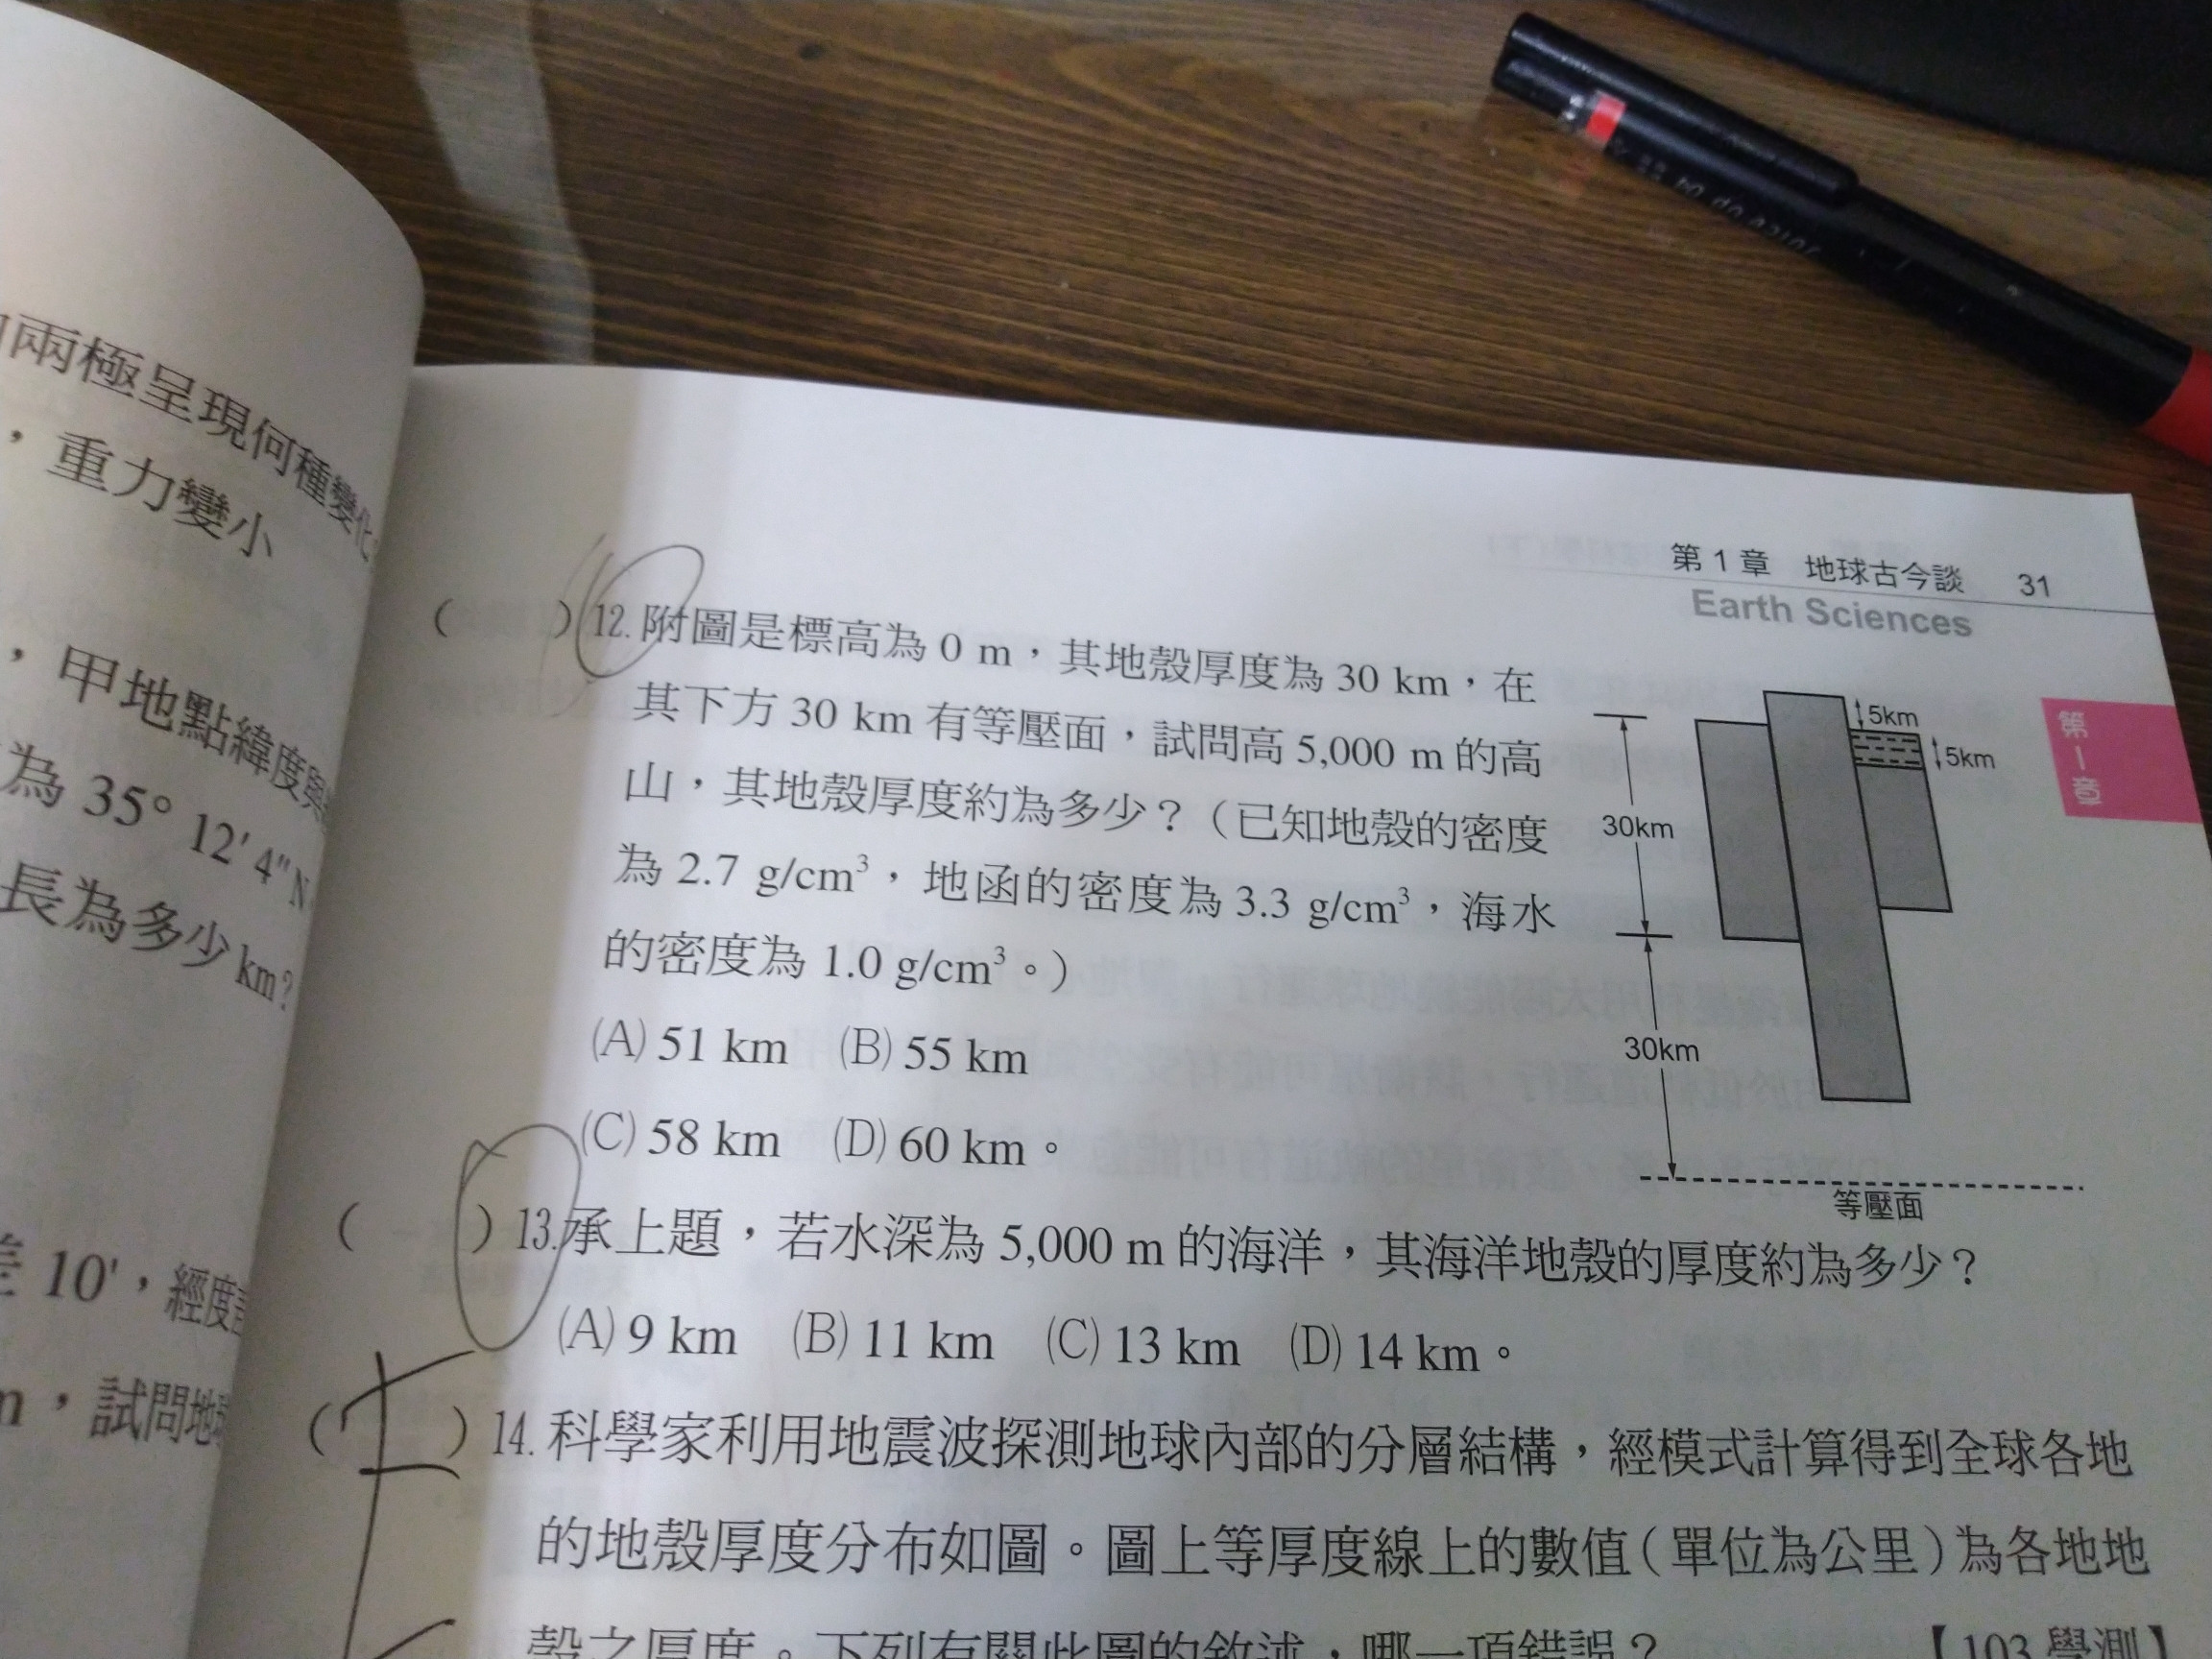 兩極呈現何種變化
，重力變小
，甲地點緯度與
為 35° 12' 4" N
長為多少 km?
差 10'，經度
，試問地
第 1 章 地球古今談 31
Earth Sciences
第1章
( )12.附圖是標高為 0 m，其地殼厚度為 30 km，在
其下方 30 km 有等壓面，試問高 5,000 m 的高
山，其地殼厚度約為多少？（已知地殼的密度
為 2.7 g/cm³，地函的密度為 3.3 g/cm³，海水
的密度為 1.0 g/cm³。）
(A) 51 km (B) 55 km
(C) 58 km (D) 60 km。
5km
5km
30km
30km
等壓面
( )13.承上題，若水深為 5,000 m 的海洋，其海洋地殼的厚度約為多少？
(A) 9 km (B) 11 km (C) 13 km (D) 14 km。
( )14.科學家利用地震波探測地球內部的分層結構，經模式計算得到全球各地
的地殼厚度分布如圖。圖上等厚度線上的數值（單位為公里）為各地地
殼之厚度。下列有關此圖的敘述，哪一項錯誤？ 【103 學測】